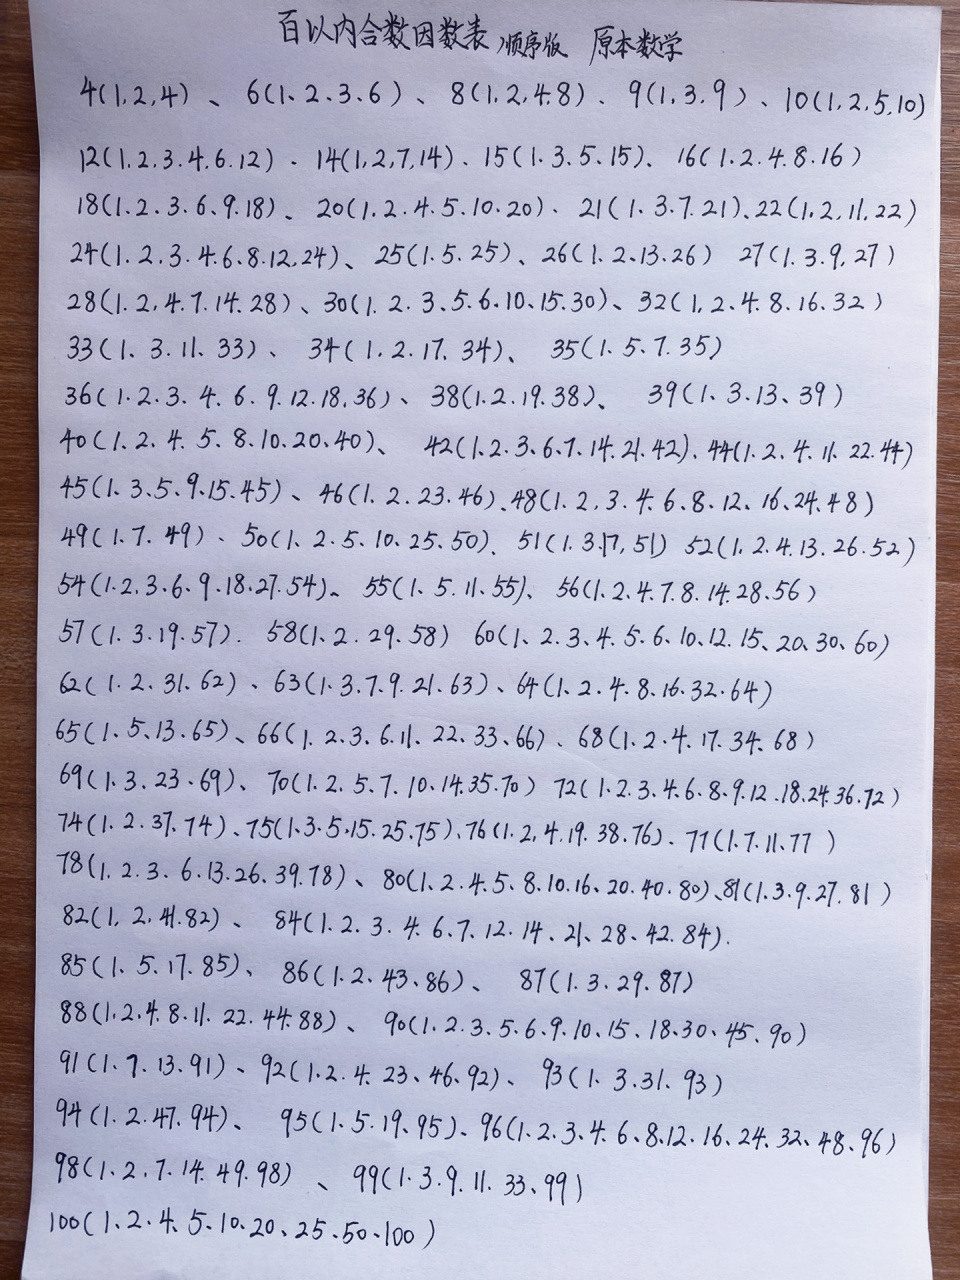 百以内合数因数表,顺序版 原本数学
4(1,2,4)、6(1、2.3.6)、8(1.2,4.8)、9(1,3.9)、10(1,2,5,10)
12(1.2.3.4,6.12)、14(1,2,7,14)、15(1.3.5.15)、16(1.2.4.8.16)
18(1.2.3.6、9.18)、20(1.2.4.5.10.20)、21(1.3.7.21)、22(1.2,11,22)
24(1.2.3.4.6.8.12,24)、25(1.5.25)、26(1.2.13.26) 27(1.3.9,27)
28(1.2,4.7.14.28)、30(1.2.3.5.6.10.15.30)、32(1,2.4.8.16.32)
33(1.3.11.33)、34(1.2.17.34)、35(1.5.7.35)
36(1.2.3.4.6.9.12.18.36)、38(1.2.19.38)、39(1、3.13、39)
40(1.2.4.5.8.10.20.40)、42(1.2.3、6.7.14.21.42)、44(1.2.4.11.22.44)
45(1.3.5.9.15.45)、46(1.2.23.46)、48(1.2,3.4.6.8.12、16、24.48)
49(1.7.49)、50(1、2.5.10.25.50)、51(1.3.17,51) 52(1,2.4.13.26.52)
54(1.2.3.6.9.18.27.54)、55(1.5.11.55)、56(1.2.4.7.8.14.28.56)
57(1.3.19.57). 58(1.2.29.58) 60(1、2.3、4.5.6、10、12.15、20、30、60)
62(1.2.31.62)、63(1.3.7.9.21.63)、64(1.2.4.8.16.32.64)
65(1.5、13.65)、66(1.2.3.6.11.22.33、66)、68(1.2.4.17.34.68)
69(1.3.23.69)、70(1.2.5.7.10.14.35.70) 72(1.2.3.4.6.8.9.12.18.24.36.72)
74(1.2.37.74)、75(1.3.5.15.25.75)、76(1.2,4.19.38.76)、77(1.7.11.77)
78(1.2.3.6.13.26.39.78)、80(1.2.4.5.8.10.16、20.40.80)、81(1.3.9.27.81)
82(1,2.41.82)、84(1.2.3.4.6.7.12.14.21、28.42.84).
85(1.5.17.85)、86(1.2.43.86)、87(1.3.29.87)
88(1.2.4.8.11.22.44.88)、90(1.2.3.5.6.9.10、15、18.30、45、90)
91(1.7.13.91)、92(1.2.4.23、46、92)、93(1.3.31.93)
94(1.2.47.94)、95(1.5.19.95)、96(1.2.3.4.6.8.12.16、24.32、48、96)
98(1.2.7.14.49.98)、99(1.3.9.11.33、99)
100(1.2.4.5.10.20、25.50.100)